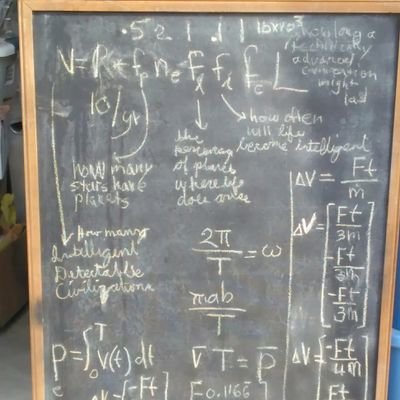 .5 2 1 .1 .1 10x10³
N = R* fp ne fl fi fc L
how long a
technically
advanced
civilization
might
last
10/yr
how many
stars have
planets
the
percentage
of planets
where life
does arise
how often
will life
become intelligent
How many
Intelligent
Detectable
Civilizations
2π/T = ω
πab/T
P = ∫₀ᵀ V(t) dt
V T = P
ΔV = Ft/m
ΔV = [Ft/3m
-Ft/3m
-Ft/3m]
ΔV = [-Ft/4m
Ft
ΔV = [-Ft
[0.1166